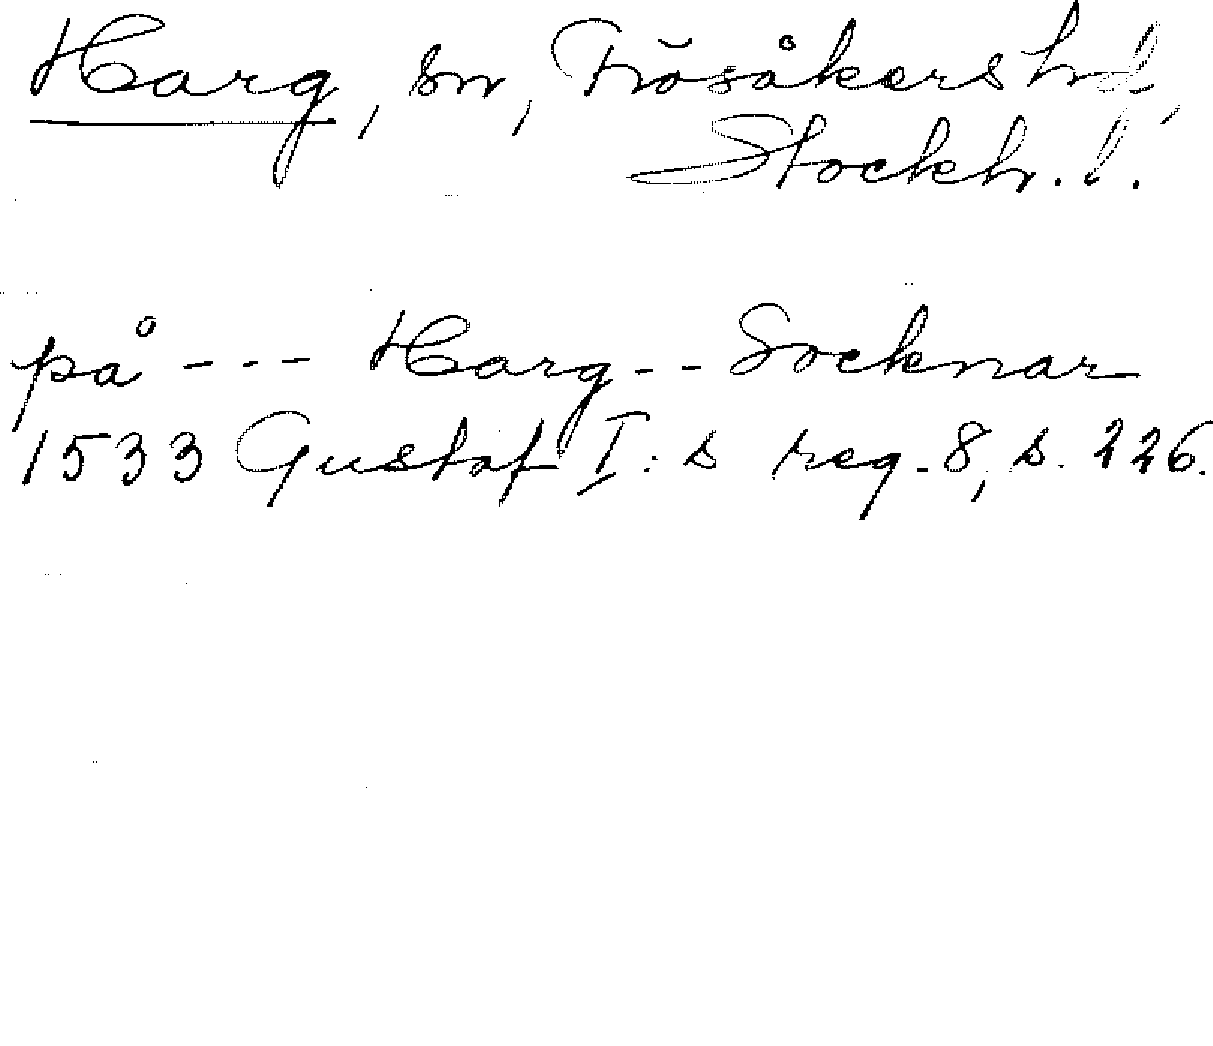 Harg, sn, Frösåkers hd,
Stockh. l.
på --- Harg -- Socknar
1533 Gustaf I:s reg. 8, s. 226.